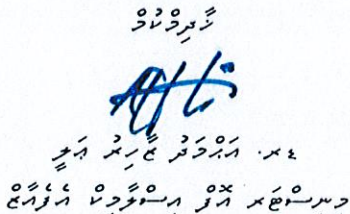 ޚާދިމްކުމް
ޑރ. އަޙްމަދު ޒާހިރު ޢަލީ
މިނިސްޓަރ އޮފް އިސްލާމިކް އެފެއާޒް